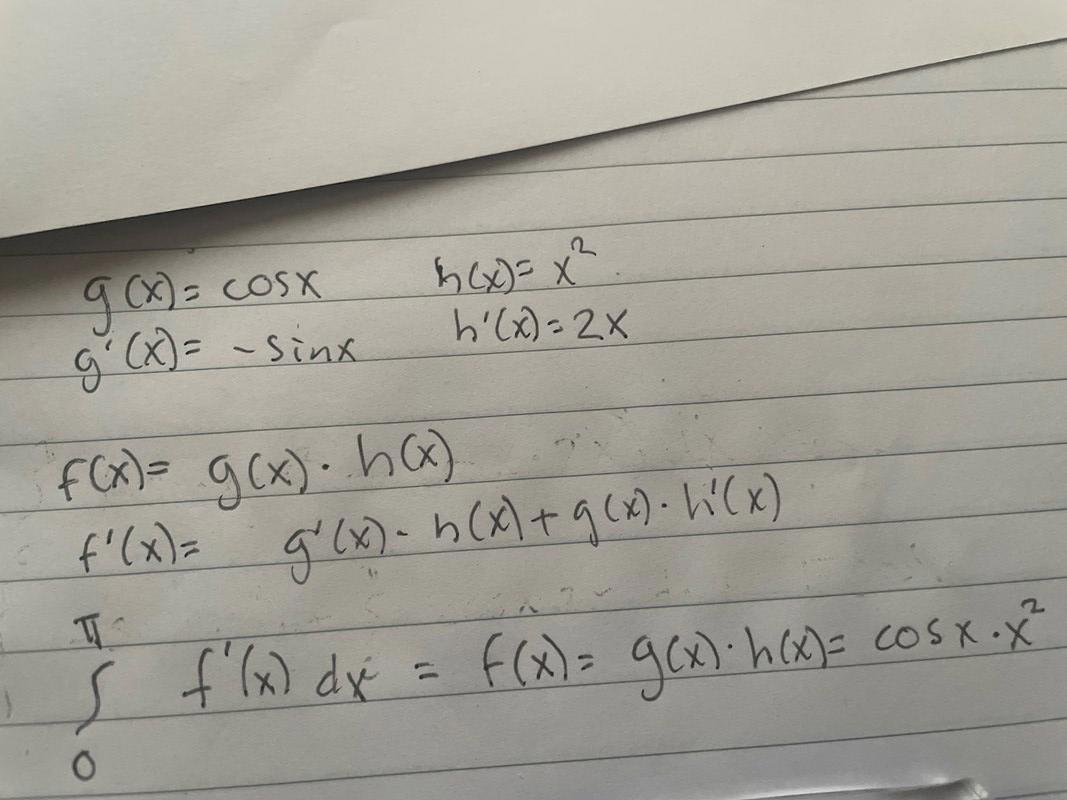 g(x)= cosx h(x)= x²
g'(x)= -sinx h'(x)=2x
f(x)= g(x)· h(x)
f'(x)= g'(x)· h(x)+g(x)· h'(x)
π
∫ f'(x) dx = f(x)= g(x)·h(x)= cosx·x²
0